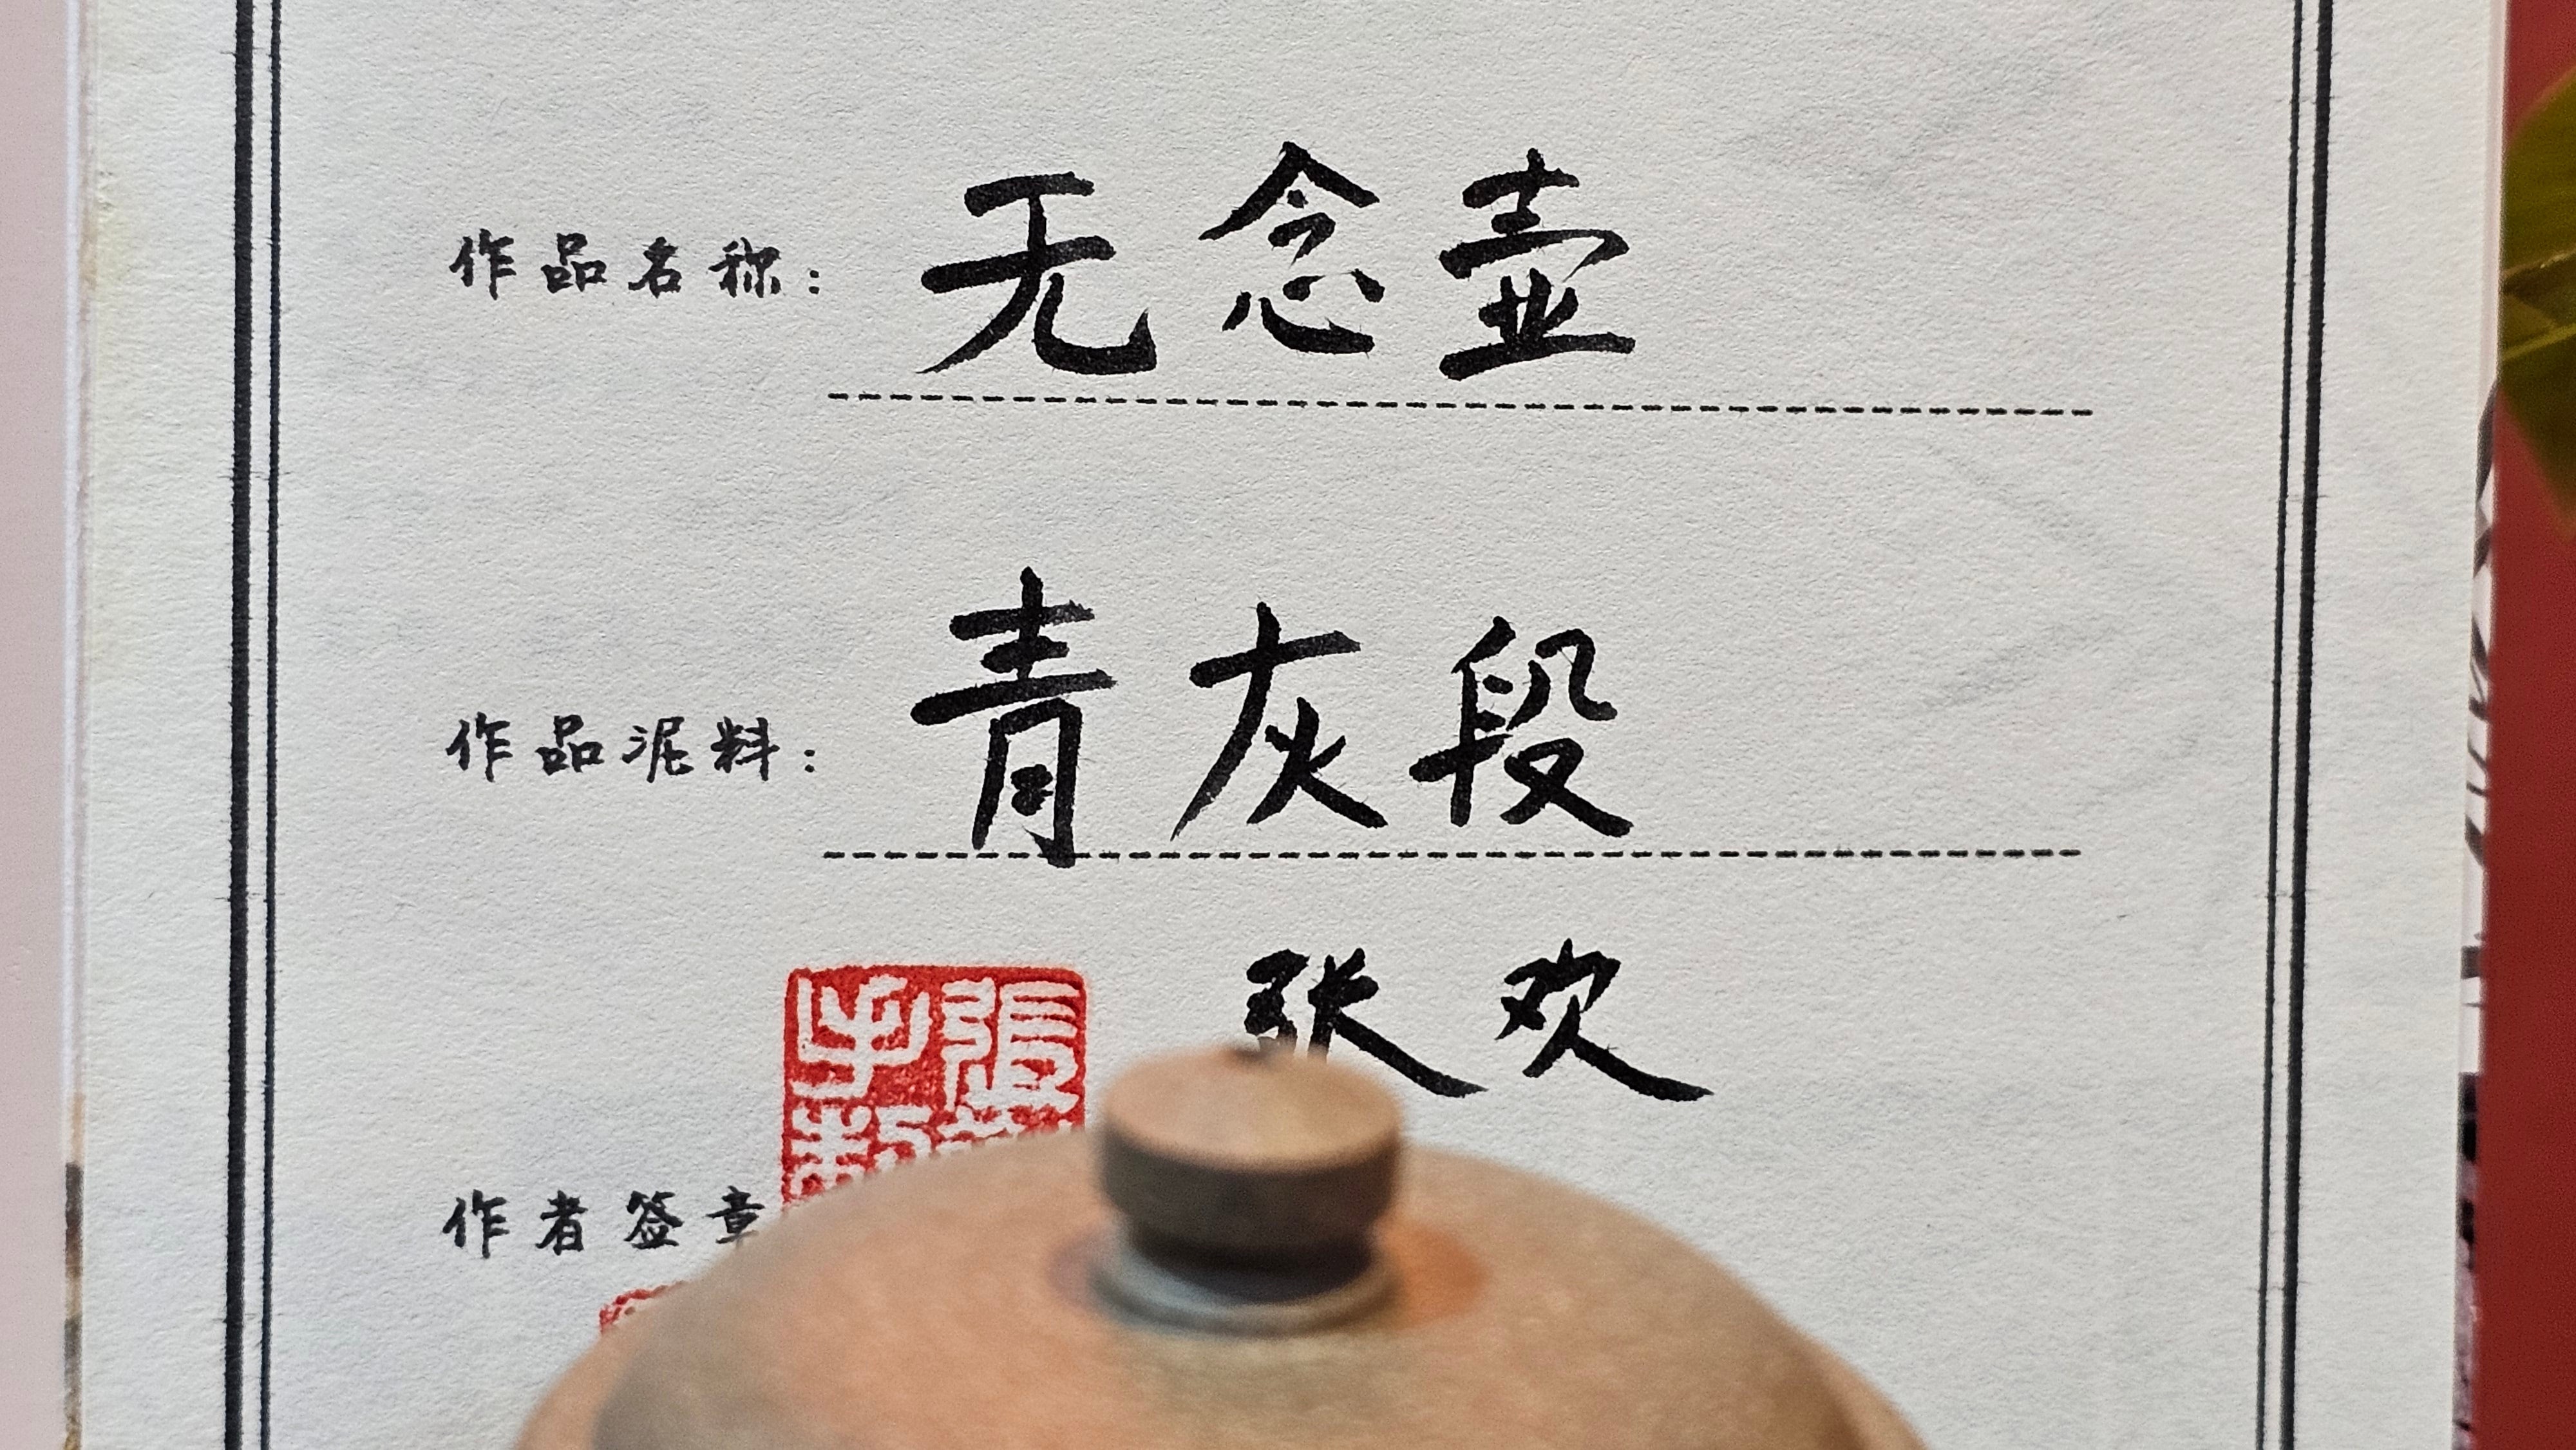 作品名称：无念壶
作品泥料：青灰段
张欢
作者签章